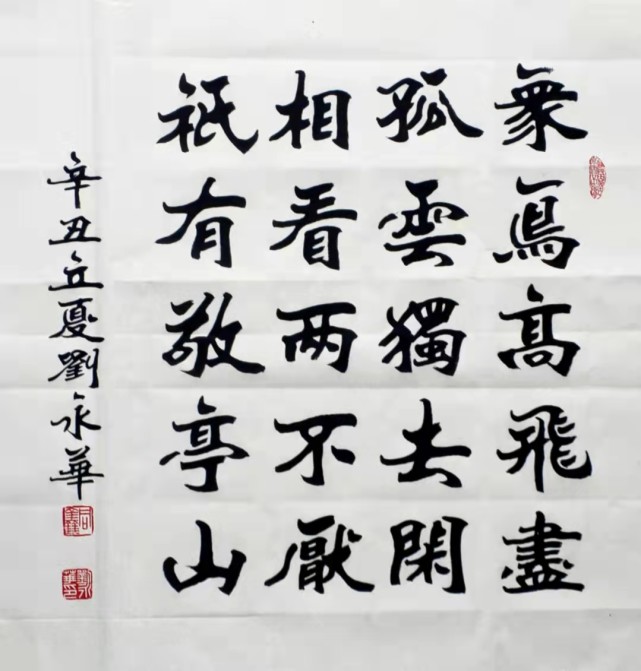 衆鳥高飛盡
孤雲獨去閑
相看两不厭
衹有敬亭山
辛丑立夏劉永華